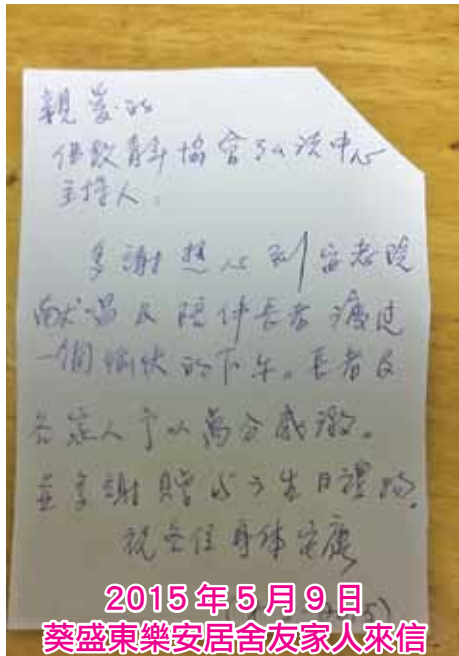 親愛的
佛教青年協會弘法中心
主持人：
多謝熱心到安老院
獻唱及陪伴長者渡過
一個愉快的下午。長者及
各家人予以萬分感激。
並多謝贈送之生日禮物。
祝各位身体安康
2015年5月9日
葵盛東樂安居舍友家人來信